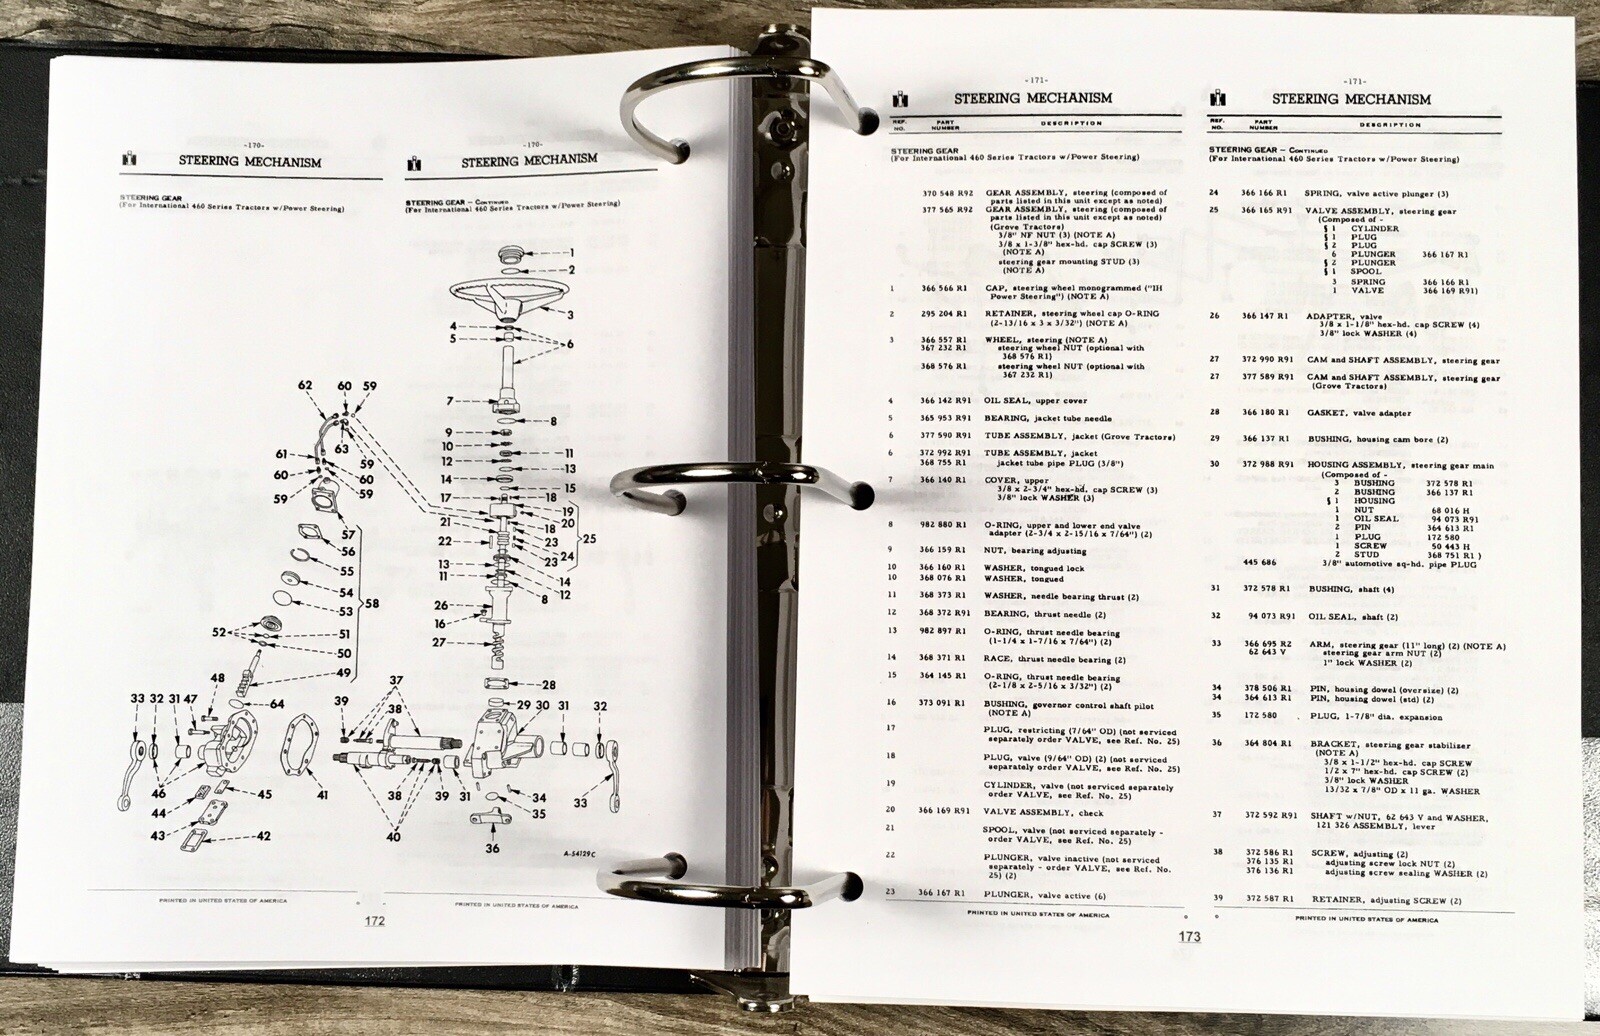 -170-
STEERING MECHANISM
STEERING GEAR
(For International 460 Series Tractors w/Power Steering)
-170-
STEERING MECHANISM
STEERING GEAR - CONTINUED
(For International 460 Series Tractors w/Power Steering)
1
2
3
4
5
6
7
8
9
10
11
12
13
14
15
17
18
19
20
21
18
22
23
25
24
23
13
14
11
12
8
26
16
27
28
62
60
59
63
61
59
60
60
59
59
57
56
55
54
53
58
52
51
50
49
48
64
33
32
31
47
39
37
38
29
30
31
32
46
45
44
43
42
41
38
39
31
40
34
35
33
36
A-54129C
PRINTED IN UNITED STATES OF AMERICA
PRINTED IN UNITED STATES OF AMERICA
172
-171-
STEERING MECHANISM
REF. NO. PART NUMBER DESCRIPTION
STEERING GEAR
(For International 460 Series Tractors w/Power Steering)
370 548 R92 GEAR ASSEMBLY, steering (composed of
parts listed in this unit except as noted)
377 565 R92 GEAR ASSEMBLY, steering (composed of
parts listed in this unit except as noted)
(Grove Tractors)
3/8" NF NUT (3) (NOTE A)
3/8 x 1-3/8" hex-hd. cap SCREW (3)
(NOTE A)
steering gear mounting STUD (3)
(NOTE A)
1 366 566 R1 CAP, steering wheel monogrammed ("IH
Power Steering") (NOTE A)
2 295 204 R1 RETAINER, steering wheel cap O-RING
(2-13/16 x 3 x 3/32") (NOTE A)
3 366 557 R1 WHEEL, steering (NOTE A)
367 232 R1 steering wheel NUT (optional with
368 576 R1)
368 576 R1 steering wheel NUT (optional with
367 232 R1)
4 366 142 R91 OIL SEAL, upper cover
5 365 953 R91 BEARING, jacket tube needle
6 377 590 R91 TUBE ASSEMBLY, jacket (Grove Tractors)
6 372 992 R91 TUBE ASSEMBLY, jacket
368 755 R1 jacket tube pipe PLUG (3/8")
7 366 140 R1 COVER, upper
3/8 x 2-3/4" hex-hd. cap SCREW (3)
3/8" lock WASHER (3)
8 982 880 R1 O-RING, upper and lower end valve
adapter (2-3/4 x 2-15/16 x 7/64") (2)
9 366 159 R1 NUT, bearing adjusting
10 366 160 R1 WASHER, tongued lock
10 368 076 R1 WASHER, tongued
11 368 373 R1 WASHER, needle bearing thrust (2)
12 368 372 R91 BEARING, thrust needle (2)
13 982 897 R1 O-RING, thrust needle bearing
(1-1/4 x 1-7/16 x 7/64") (2)
14 368 371 R1 RACE, thrust needle bearing (2)
15 364 145 R1 O-RING, thrust needle bearing
(2-1/8 x 2-5/16 x 3/32") (2)
16 373 091 R1 BUSHING, governor control shaft pilot
(NOTE A)
17 PLUG, restricting (7/64" OD) (not serviced
separately order VALVE, see Ref. No. 25)
18 PLUG, valve (9/64" OD) (2) (not serviced
separately order VALVE, see Ref. No. 25)
19 CYLINDER, valve (not serviced separately
order VALVE, see Ref. No. 25)
20 366 169 R91 VALVE ASSEMBLY, check
21 SPOOL, valve (not serviced separately -
order VALVE, see Ref. No. 25)
22 PLUNGER, valve inactive (not serviced
separately - order VALVE, see Ref. No.
25) (2)
23 366 167 R1 PLUNGER, valve active (6)
PRINTED IN UNITED STATES OF AMERICA
-171-
STEERING MECHANISM
REF. NO. PART NUMBER DESCRIPTION
STEERING GEAR - CONTINUED
(For International 460 Series Tractors w/Power Steering)
24 366 166 R1 SPRING, valve active plunger (3)
25 366 165 R91 VALVE ASSEMBLY, steering gear
(Composed of -
§ 1 CYLINDER
§ 1 PLUG
§ 2 PLUG
6 PLUNGER 366 167 R1
§ 2 PLUNGER
§ 1 SPOOL
3 SPRING 366 166 R1
1 VALVE 366 169 R91)
26 366 147 R1 ADAPTER, valve
3/8 x 1-1/8" hex-hd. cap SCREW (4)
3/8" lock WASHER (4)
27 372 990 R91 CAM and SHAFT ASSEMBLY, steering gear
27 377 589 R91 CAM and SHAFT ASSEMBLY, steering gear
(Grove Tractors)
28 366 180 R1 GASKET, valve adapter
29 366 137 R1 BUSHING, housing cam bore (2)
30 372 988 R91 HOUSING ASSEMBLY, steering gear main
(Composed of -
3 BUSHING 372 578 R1
2 BUSHING 366 137 R1
§ 1 HOUSING
1 NUT 68 016 H
1 OIL SEAL 94 073 R91
2 PIN 364 613 R1
1 PLUG 172 580
1 SCREW 50 443 H
2 STUD 368 751 R1 )
445 686 3/8" automotive sq-hd. pipe PLUG
31 372 578 R1 BUSHING, shaft (4)
32 94 073 R91 OIL SEAL, shaft (2)
33 366 695 R2 ARM, steering gear (11" long) (2) (NOTE A)
62 643 V steering gear arm NUT (2)
1" lock WASHER (2)
34 378 506 R1 PIN, housing dowel (oversize) (2)
34 364 613 R1 PIN, housing dowel (std) (2)
35 172 580 PLUG, 1-7/8" dia. expansion
36 364 804 R1 BRACKET, steering gear stabilizer
(NOTE A)
3/8 x 1-1/2" hex-hd. cap SCREW
1/2 x 7" hex-hd. cap SCREW (2)
3/8" lock WASHER
13/32 x 7/8" OD x 11 ga. WASHER
37 372 592 R91 SHAFT w/NUT, 62 643 V and WASHER,
121 326 ASSEMBLY, lever
38 372 586 R1 SCREW, adjusting (2)
376 135 R1 adjusting screw lock NUT (2)
376 136 R1 adjusting screw sealing WASHER (2)
39 372 587 R1 RETAINER, adjusting SCREW (2)
PRINTED IN UNITED STATES OF AMERICA
173